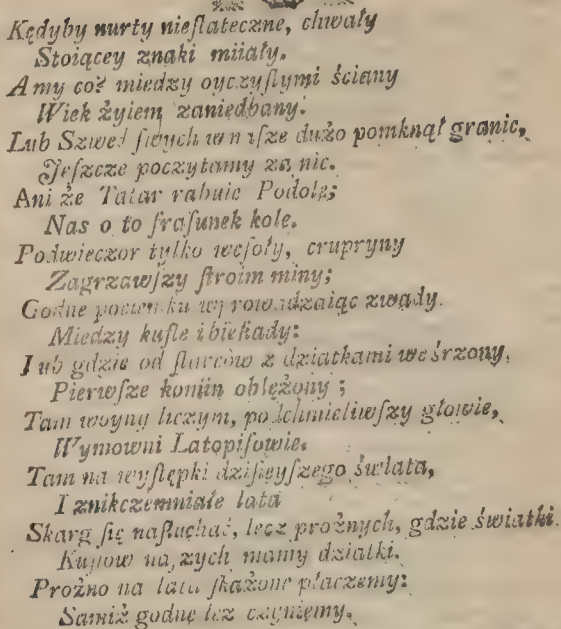 Kędyby nurty nieſtateczne, chwały
Stoiącey znaki miiały.
A my coż miedzy oyczyſtymi ściany
Wiek żyiem zaniedbany:
Lub Szwed ſwych w n ſze dużo pomknął granic,
Jeſzcze poczytamy za nic.
Ani że Tatar rabuie Podole;
Nas o to fraſunek kole.
Podwieczor tylko weſoły, crupryny
Zagrzawſzy ſtroim miny;
Godne zwady.
Miedzy kufle i bieſiady:
Lub gdzie od ſtarcow z dziatkami weśrzony,
Pierwſze komin oblężony;
Tam woynę liczym, podchmieliwſzy głowie,
Wymowni Latopiſowie.
Tam na wyſtępki dziſieyſzego świata,
I znikczemniałe lata
Skarg ſię naſłuchać, lecz prożnych, gdzie światki
mamy dziatki.
Prożno na lata ſkażone płaczemy:
Samiż godne łez czyniemy.